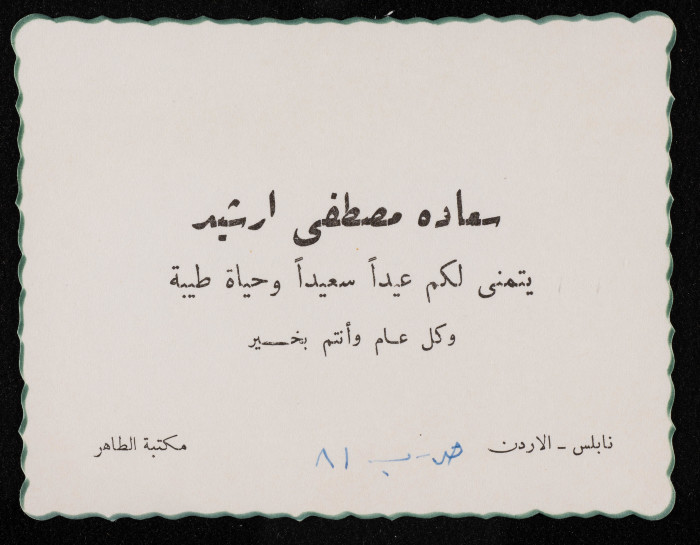 سعاده مصطفى ارشيد
يتمنى لكم عيداً سعيداً وحياة طيبة
وكل عام وأنتم بخير
نابلس - الاردن ص.ب ٨١ مكتبة الطاهر